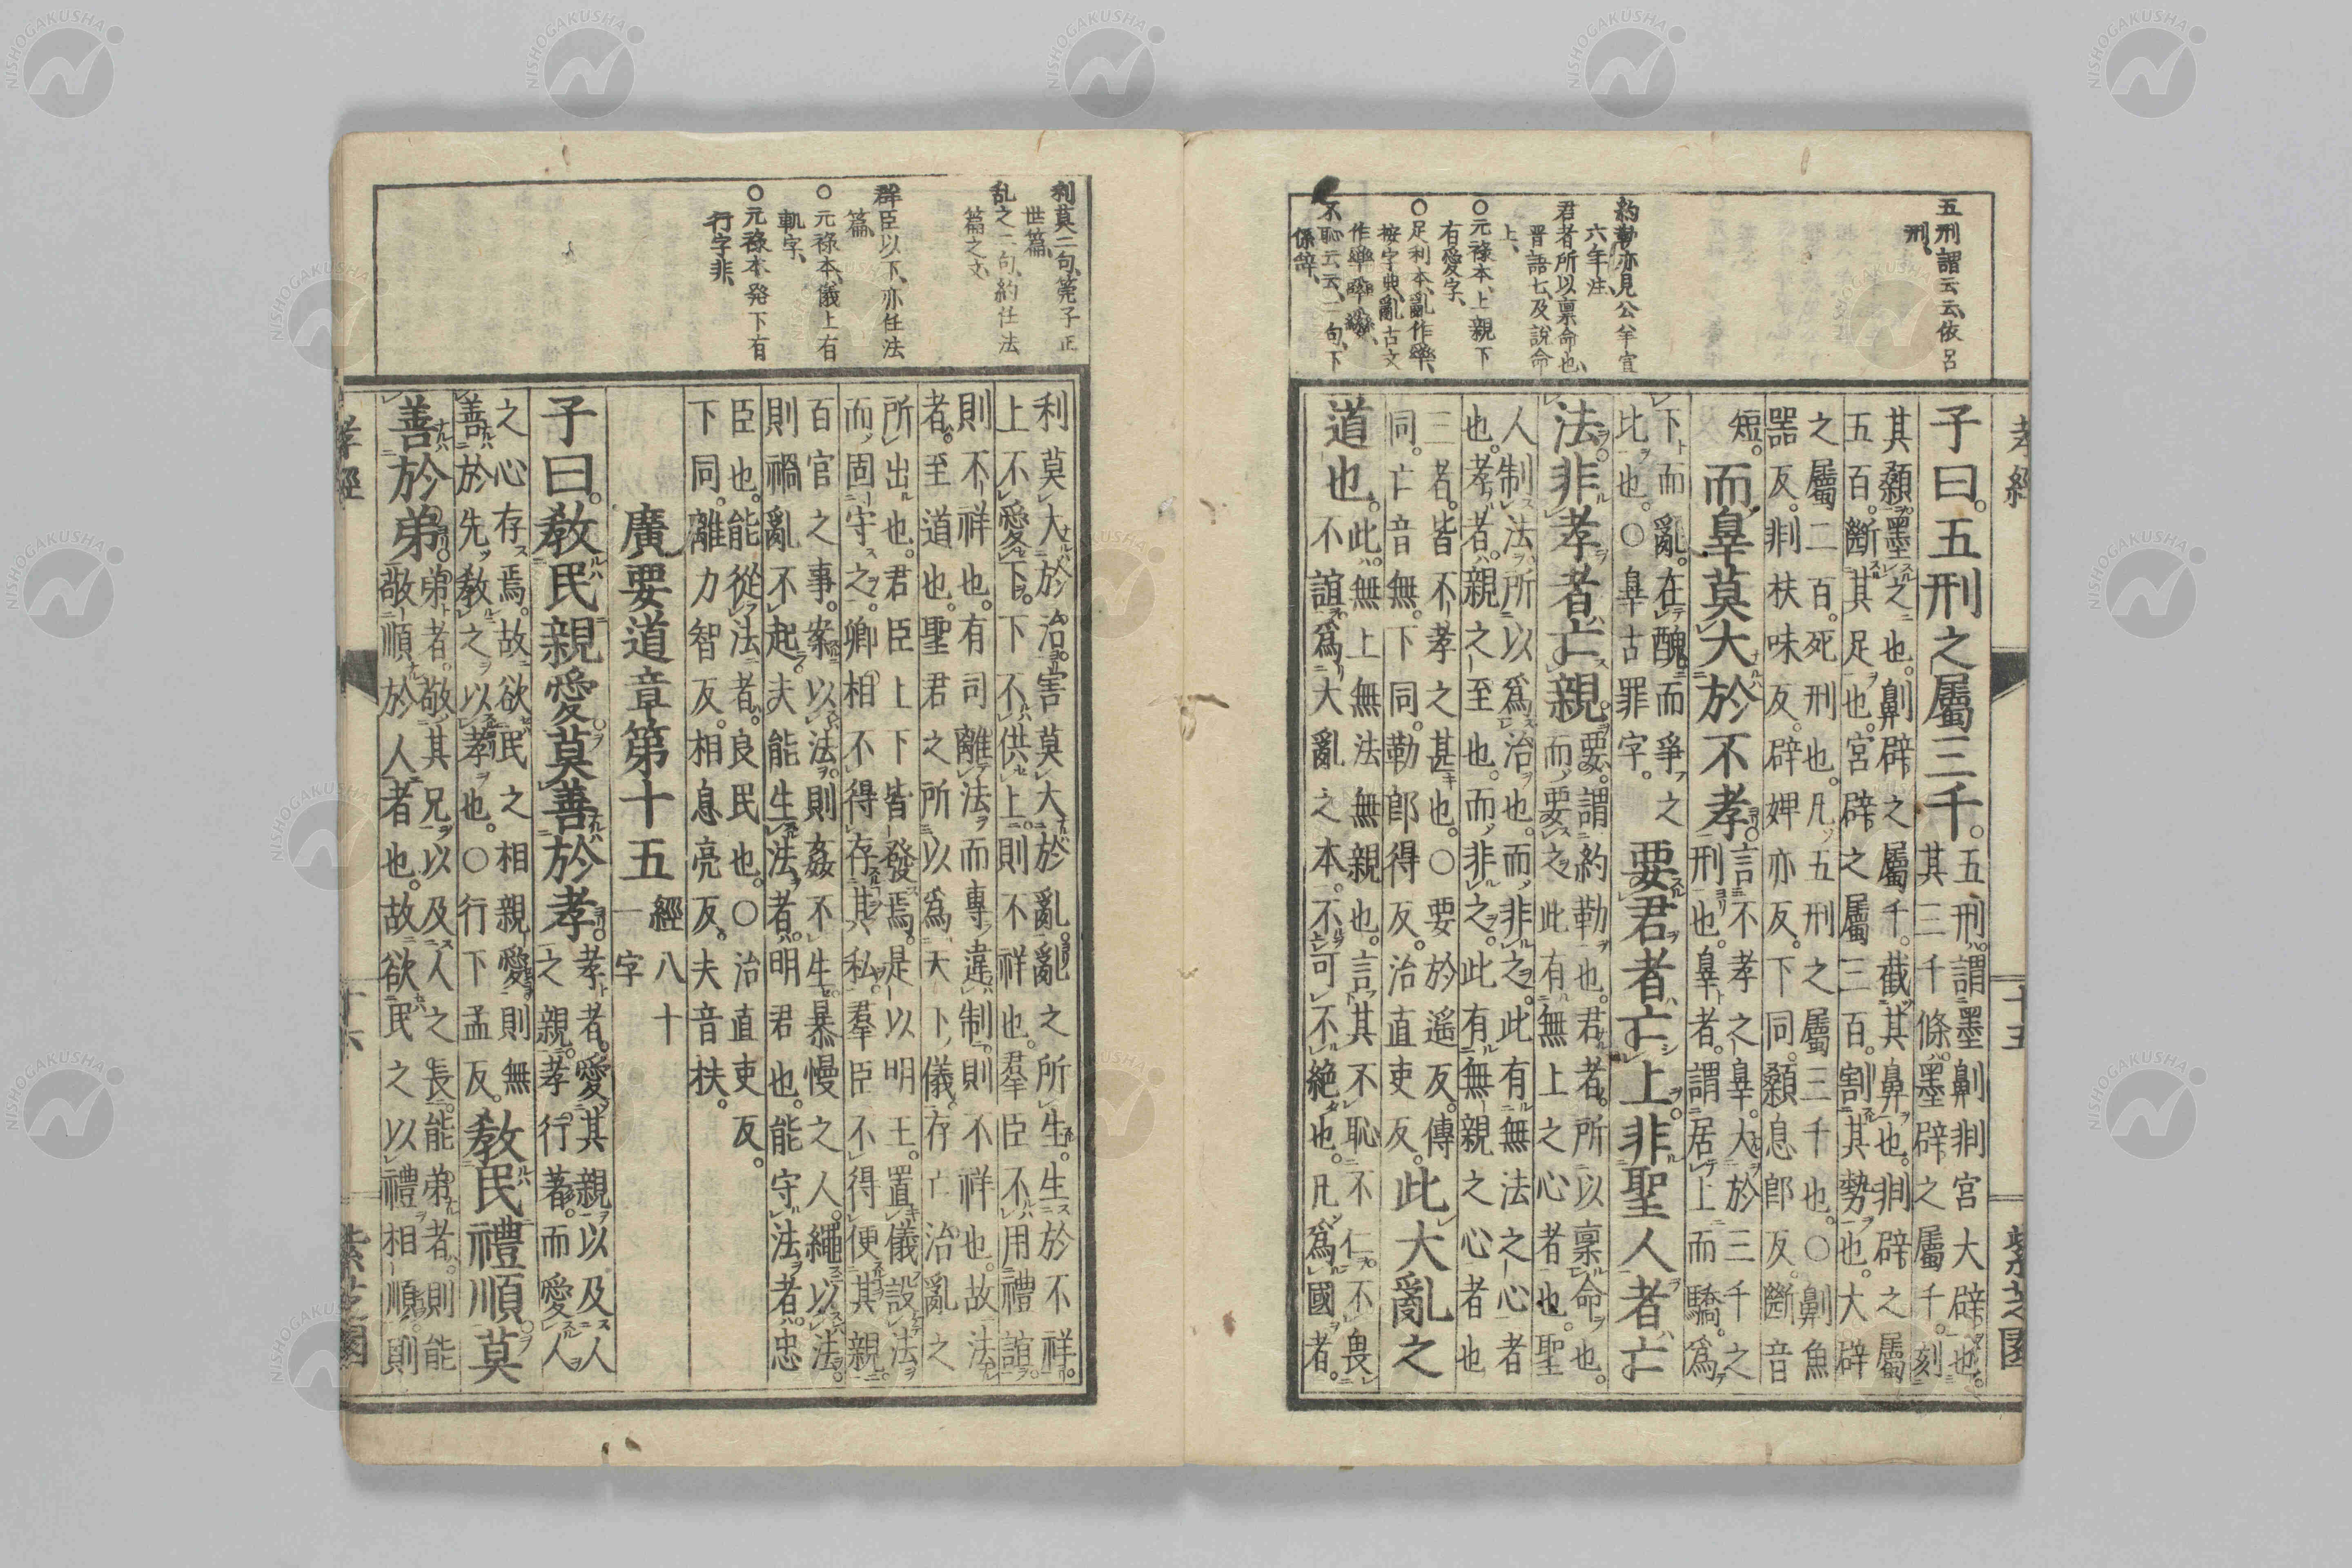 五刑謂云云、依呂
刑、
約勒亦見公羊宣
六年注、
君者所以稟命也、
晋語七、及說命
上、
○元祿本、上親下
有愛字、
○足利本、亂作
按字典、亂古文
作
不恥云云、二句、下
係辞、
孝經
十五
紫芝園
子曰。五刑之屬三千。五刑。謂墨劓剕宮大辟也。
其三千條。墨辟之屬千。刻
其顙墨之也。劓辟之屬千。截其鼻也。剕辟之屬
五百。斷其足也。宮辟之屬三百。割其勢也。大辟
之屬二百。死刑也。凡五刑之屬三千也。○劓魚
器反。剕扶味反。辟婢亦反。下同。顙息郎反。斷音
短。而辠莫大於不孝。言不孝之辠。大於三千之
刑也。辠者。謂居上而驕。爲
下而亂。在醜而爭之
比也。○辠古罪字。要君者亡上。非聖人者亡
法。非孝者亡親。要。謂約勒也。君者。所以稟命也。
而要之此有無上之心者也。聖
人制法。所以爲治也。而非之。此有無法之心者
也。孝者。親之至也。而非之。此有無親之心者也
三者。皆不孝之甚也。○要於遙反。傳
同。亡音無。下同。勒郎得反。治直吏反。此大亂之
道也。此。無上無法無親也。言其不恥不仁。不畏
不誼爲大亂之本。不可不絶也。凡爲國者。
利莫二句、筦子正
世篇、
乱之二句、約任法
篇之文、
群臣以下、亦任法
篇、
○元祿本、儀上有
軌字、
○元祿本、発下有
行字非、
利莫大於治。害莫大於亂。亂之所生。生於不祥。
上不愛下。下不供上。則不祥也。羣臣不用禮誼。
則不祥也。有司離法而專違制。則不祥也。故法
者。至道也。聖君之所以爲天下儀。存亡治亂之
所出也。君臣上下皆發焉。是以明王。置儀設法
而固守之。卿相不得存其私。羣臣不得便其親。
百官之事。案以法。則姦不生。暴慢之人。繩以法。
則禍亂不起。夫能生法者。明君也。能守法者。忠
臣也。能從法者。良民也。○治直吏反。
下同。離力智反。相息亮反。夫音扶。
廣要道章第十五 經八十
一字
子曰。敎民親愛莫善於孝。孝者。愛其親以及人
之親。孝行著。而愛人
之心存焉。故欲民之相親愛。則無
善於先敎之以孝也。○行下孟反。敎民禮順莫
善於弟。弟者。敬其兄以及人之長。能弟者。則能
敬順於人者也。故欲民之以禮相順。則
孝經
十六
紫芝園